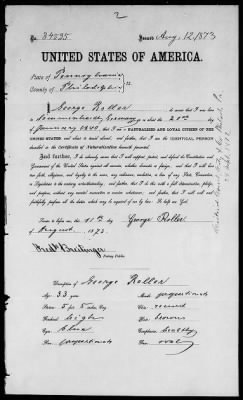 2
No. 34235 Issued Aug. 12, 1873
UNITED STATES OF AMERICA.
State of Pennsylvania
County of Philadelphia } ss.
I, George Roller do swear that I was born
in Germany on or about the 20th day
of January 1840, that I am a NATURALIZED AND LOYAL CITIZEN OF THE
UNITED STATES and about to travel abroad, and that I am the IDENTICAL PERSON
described in the Certificate of Naturalization herewith presented.
And further, I do solemnly swear that I will support, protect, and defend the Constitution and
Government of the United States against all enemies, whether domestic or foreign, and that I will bear
true faith, allegiance, and loyalty to the same, any ordinance, resolution, or law of any State, Convention
or Legislature to the contrary notwithstanding; and further, that I do this with a full determination, pledge,
and purpose, without any mental reservation or evasion whatsoever, and further, that I will well and faithfully
perform all the duties which may be required of me by law.
So help me GOD.
Sworn to before me, this 11th day
of August 1873.
George Roller
Fredk Breitinger
Notary Public
Description of George Roller
Age: 33 years
Stature: 5 ft 5 inches, Eng.
Forehead: high
Eyes: blue
Nose: proportionate
Mouth: proportionate
Chin: round
Hair: brown
Complexion: healthy
Face: oval